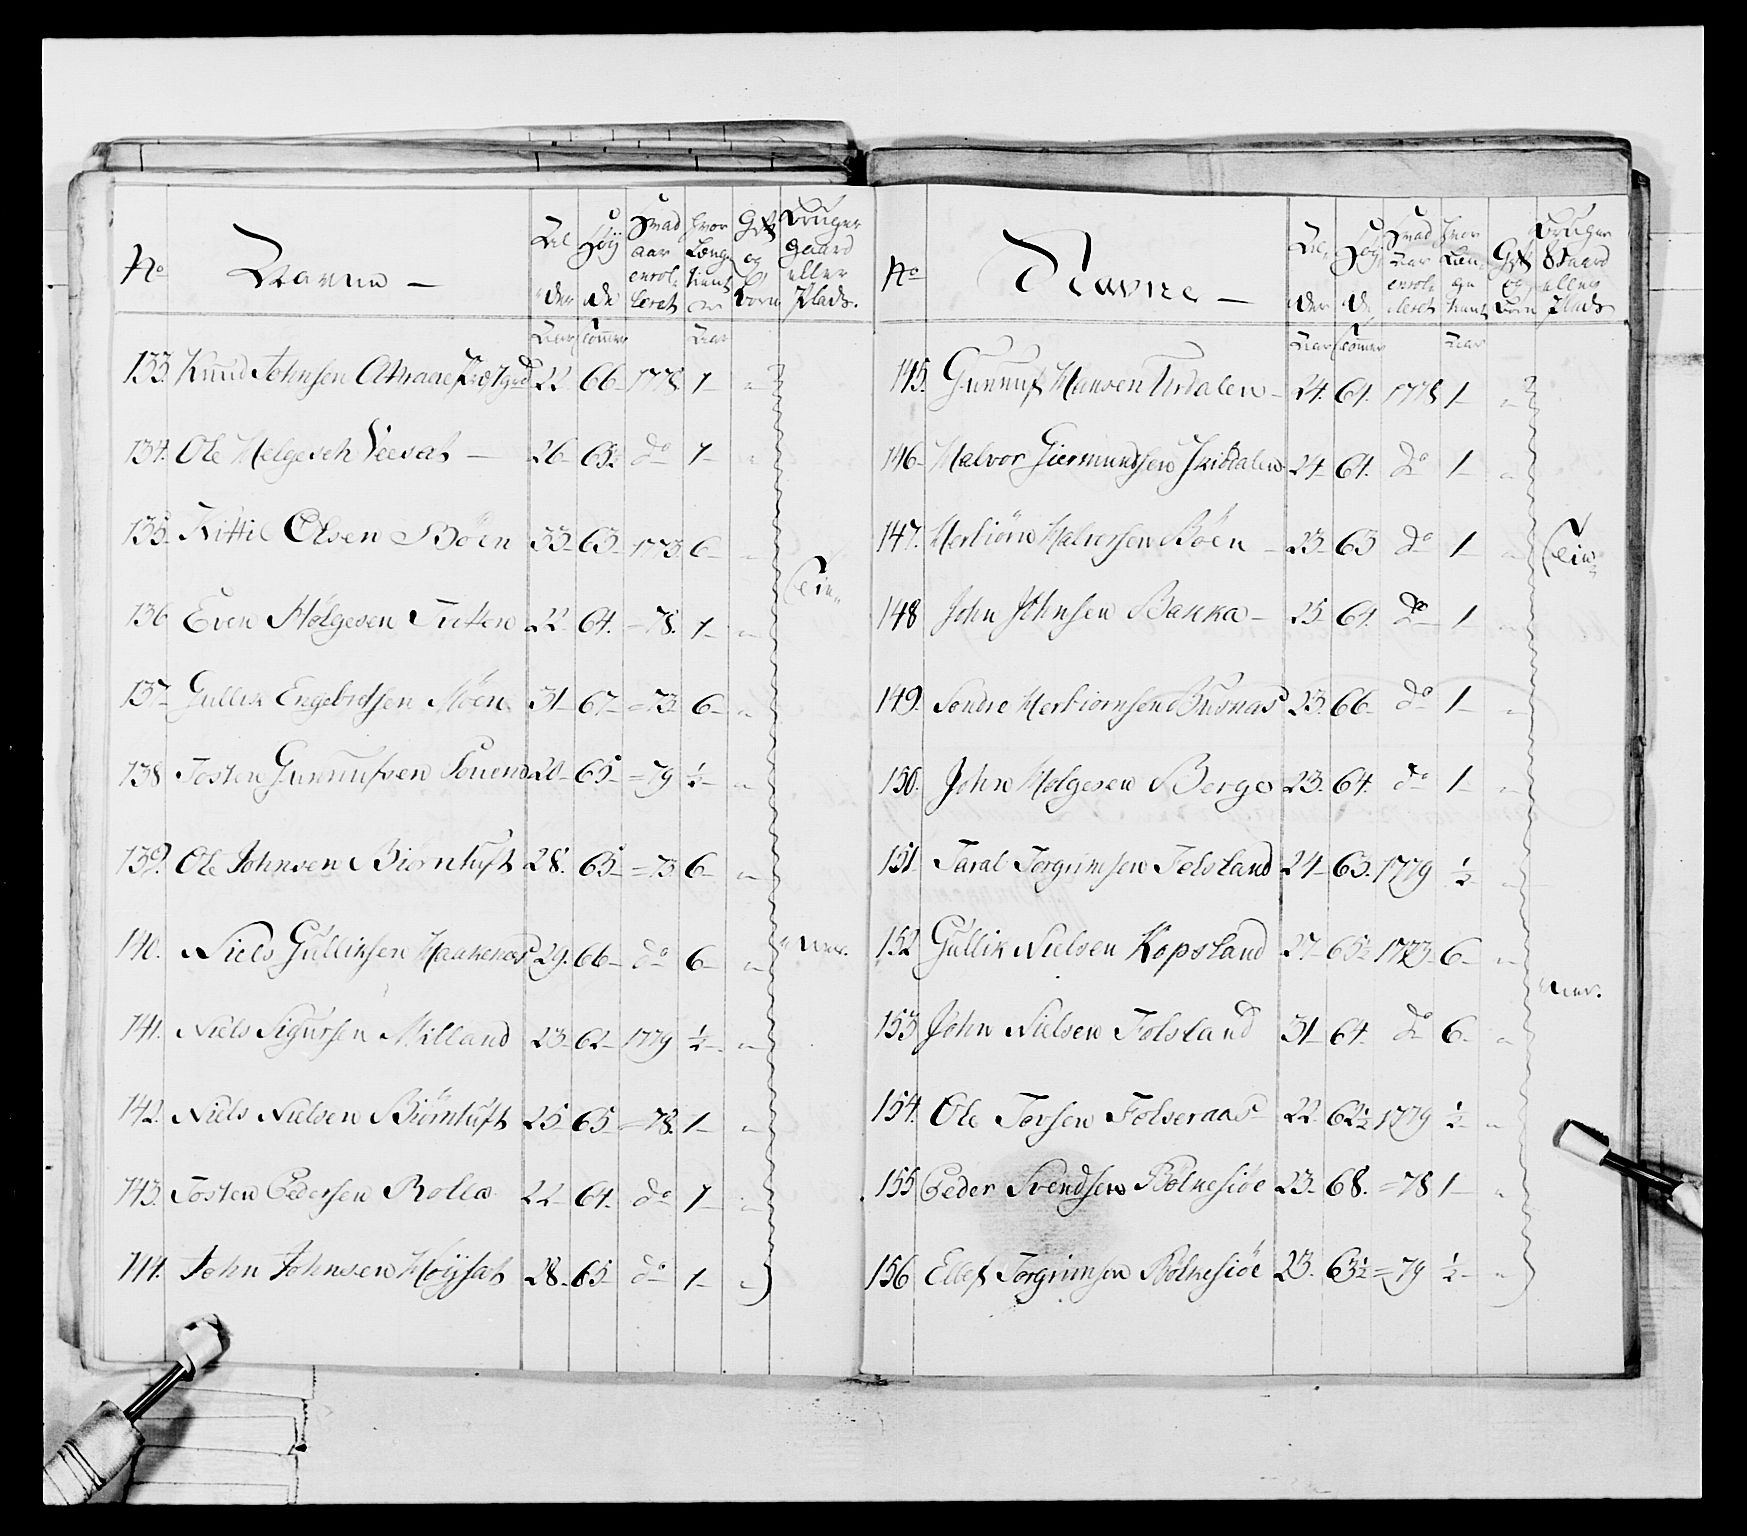 No Navne — Al- der Høy de hvad aar enrol- leret hvor Længe tient Gift og Børn Bruger gaard eller Plads.
Aar tommer Aar
133. Knud Johnsen 22 66 1778 1 "
134. Ole Helgesen Veesat — 26 65½ do 1 "
135. Kittil Olsen Böen 33 63 1773 6 "
Ein
136 Even Hölgesen Tuften 22 64. = 78. 1 "
137 Gullik Engebretsen Möen 31 67 = 73 6 "
138 Tosten Gunnufsen 20 65 = 79 ½ "
139. Ole Johnsen Biörntuft 28. 65 = 73 6 "
140. Niels Gulliksen Haakenæs 29. 66 do 6 "
141. Niels Sigursen Milland 23 62 1779 ½ "
142. Niels Nielsen Biörntuft 25 65 = 78. 1 "
143. Tosten Pedersen Rolea 22 64. do 1 "
144. John Johnsen Höysat 28. 65 do 1 "
No Navne — Al- der Høy de hvad Aar enrol- leret hvor Læn- ge tient Gift og Børn Bruger Gaard eller Plads
Aar tommer Aar
145. Gunnuf Hansen Urdalen 24. 64. 1778 1 "
146 Halvor Giermundsen Skirdalen 24. 64. do 1 "
147. Herbiörn Halvorsen Böen 23 63 do 1 "
Ein
148 John Johnsen Bakka 25 64. do 1 "
149. Sondre Herbiörnsen Busnæs 23. 66 do 1 "
150. John Holgesen Berge 23. 64. do 1 "
151 Taral Torgrimsen Felsland 24 63. 1779 ½ "
152 Gullik Nielsen Kopsland 27 65½ 1773 6 "
153 John Nielsen Folsland 31 64. do 6 "
154. Ole Torsen Folseraas 22 62½ 1779 ½ "
155 Peder Svendsen Bölkesiöe 23 68. = 78 1 "
156 Ellef Torgrimsen Bölkesiöe 23. 63½ = 79 ½ "